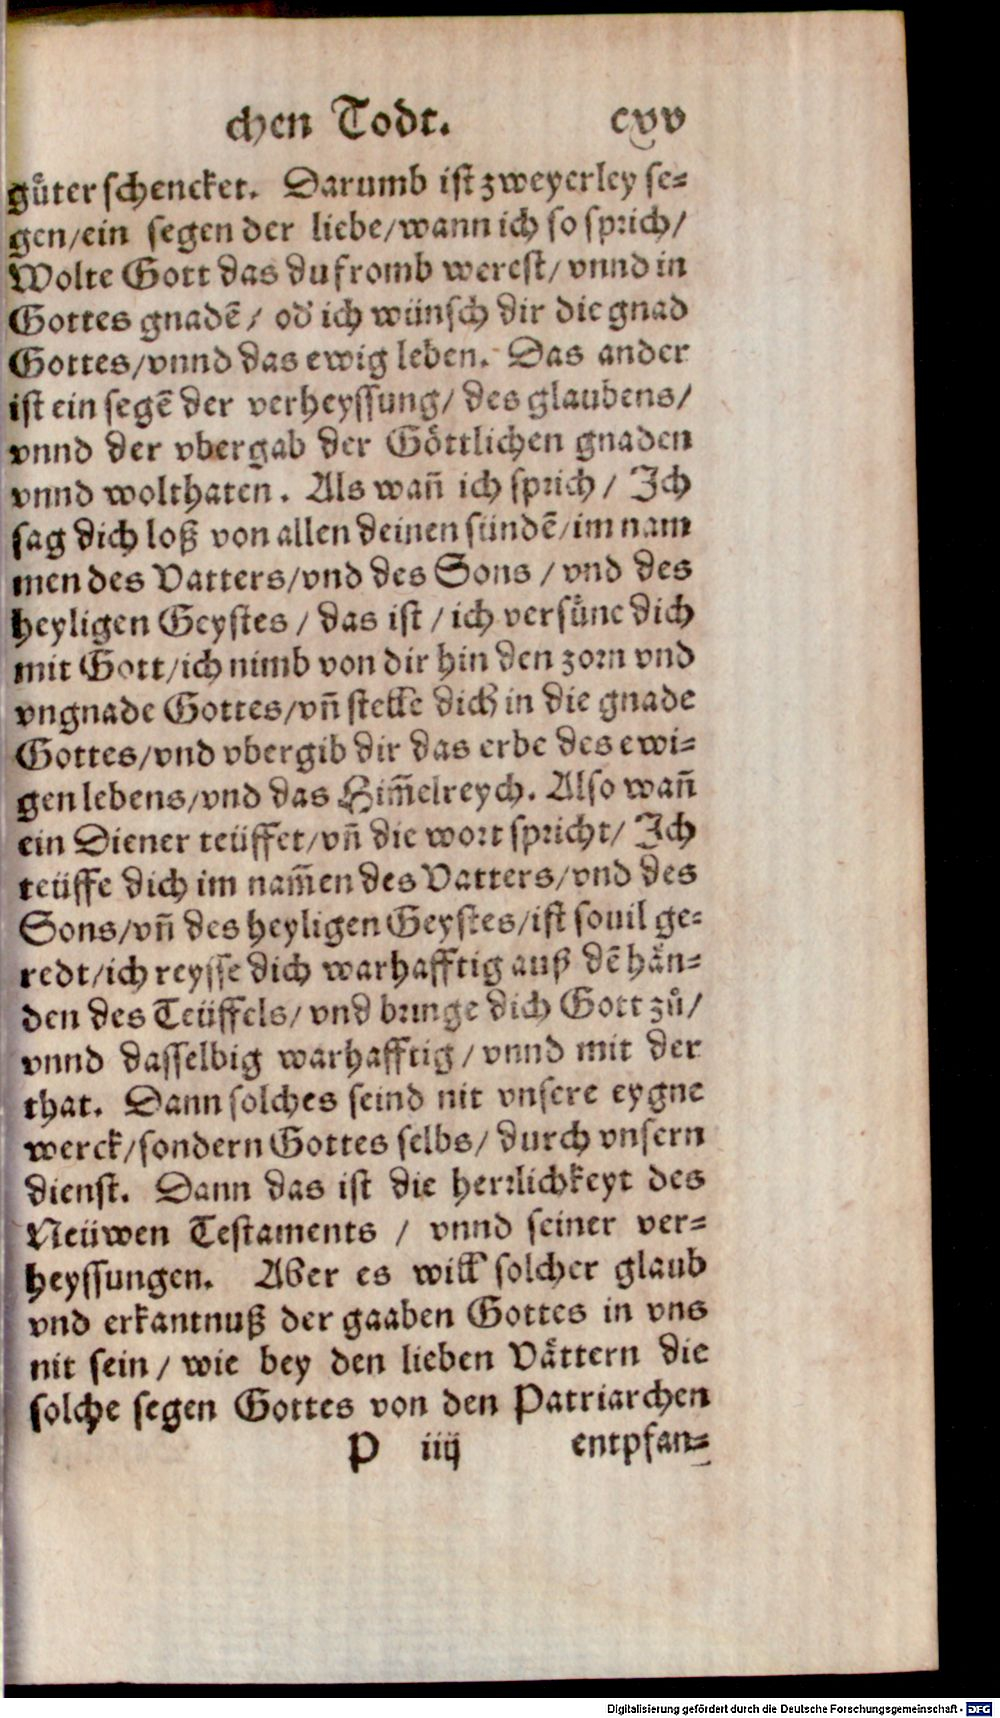 chen Todt. cxv
guͤter schencket. Darumb ist zweyerley se⸗
gen/ein segen der liebe/wann ich so sprich/
Wolte Gott das du fromb werest/vnnd in
Gottes gnadẽ/ od' ich wünsch dir die gnad
Gottes/vnnd das ewig leben. Das ander
ist ein segẽ der verheyssung/ des glaubens/
vnnd der vbergab der Goͤttlichen gnaden
vnnd wolthaten. Als wañ ich sprich/ Ich
sag dich loß von allen deinen sündẽ/im nam
men des Vatters/vnd des Sons/vnd des
heyligen Geystes/ das ist/ ich versuͤne dich
mit Gott/ich nimb von dir hin den zorn vnd
vngnade Gottes/vñ stelle dich in die gnade
Gottes/vnd vbergib dir das erbe des ewi⸗
gen lebens/vnd das Him̃elreych. Also wañ
ein Diener teüffet/vñ die wort spricht/ Ich
teüffe dich im nam̃en des Vatters/vnd des
Sons/vñ des heyligen Geystes/ist souil ge⸗
redt/ich reysse dich warhafftig auß dẽ haͤn⸗
den des Teüffels/ vnd bringe dich Gott zuͦ/
vnnd dasselbig warhafftig/vnnd mit der
that. Dann solches seind nit vnsere eygne
werck/sondern Gottes selbs/ durch vnsern
dienst. Dann das ist die herrlichkeyt des
Neüwen Testaments / vnnd seiner ver⸗
heyssungen. Aber es will solcher glaub
vnd erkantnuß der gaaben Gottes in vns
nit sein/ wie bey den lieben Vaͤttern die
solche segen Gottes von den Patriarchen
P iiij entpfan⸗
Digitalisierung gefördert durch die Deutsche Forschungsgemeinschaft - DFG